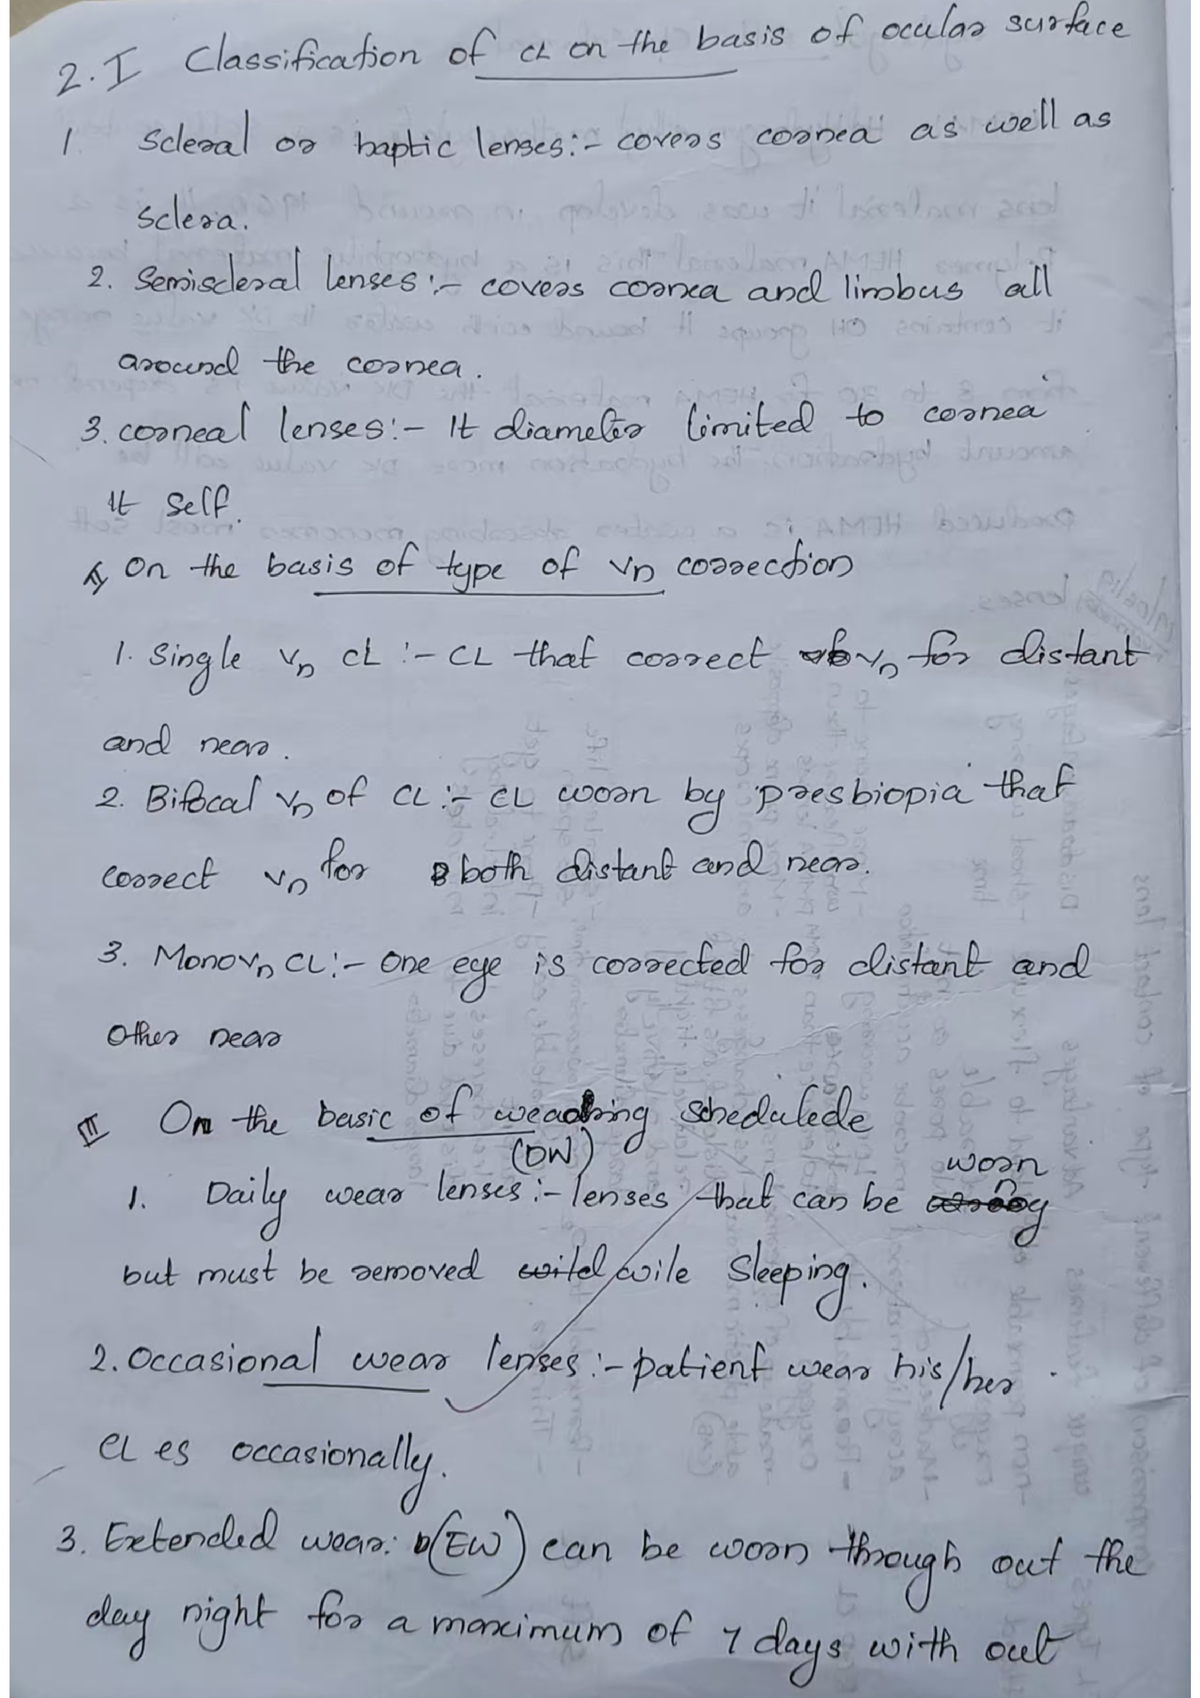 2.I Classification of CL on the basis of ocular surface
1. Scleral or haptic lenses:- covers cornea as well as
sclera.
2. Semiscleral lenses:- covers cornea and limbus all
around the cornea.
3. corneal lenses:- It diameter limited to cornea
it self.
II On the basis of type of Vn correction
1. Single Vn CL:- CL that correct Vn for distant
and near.
2. Bifocal Vn of CL:- CL worn by presbiopia that
correct Vn for both distant and near.
3. MonoVn CL:- One eye is corrected for distant and
Other near
III On the basic of wearing schedulede
(DW) worn
1. Daily wear lenses:- lenses that can be
but must be removed wile Sleeping.
2. Occasional wear lenses:- patient wear his/her
CL es occasionally.
3. Extended wear: (EW) can be worn through out the
day night for a maximum of 7 days with out